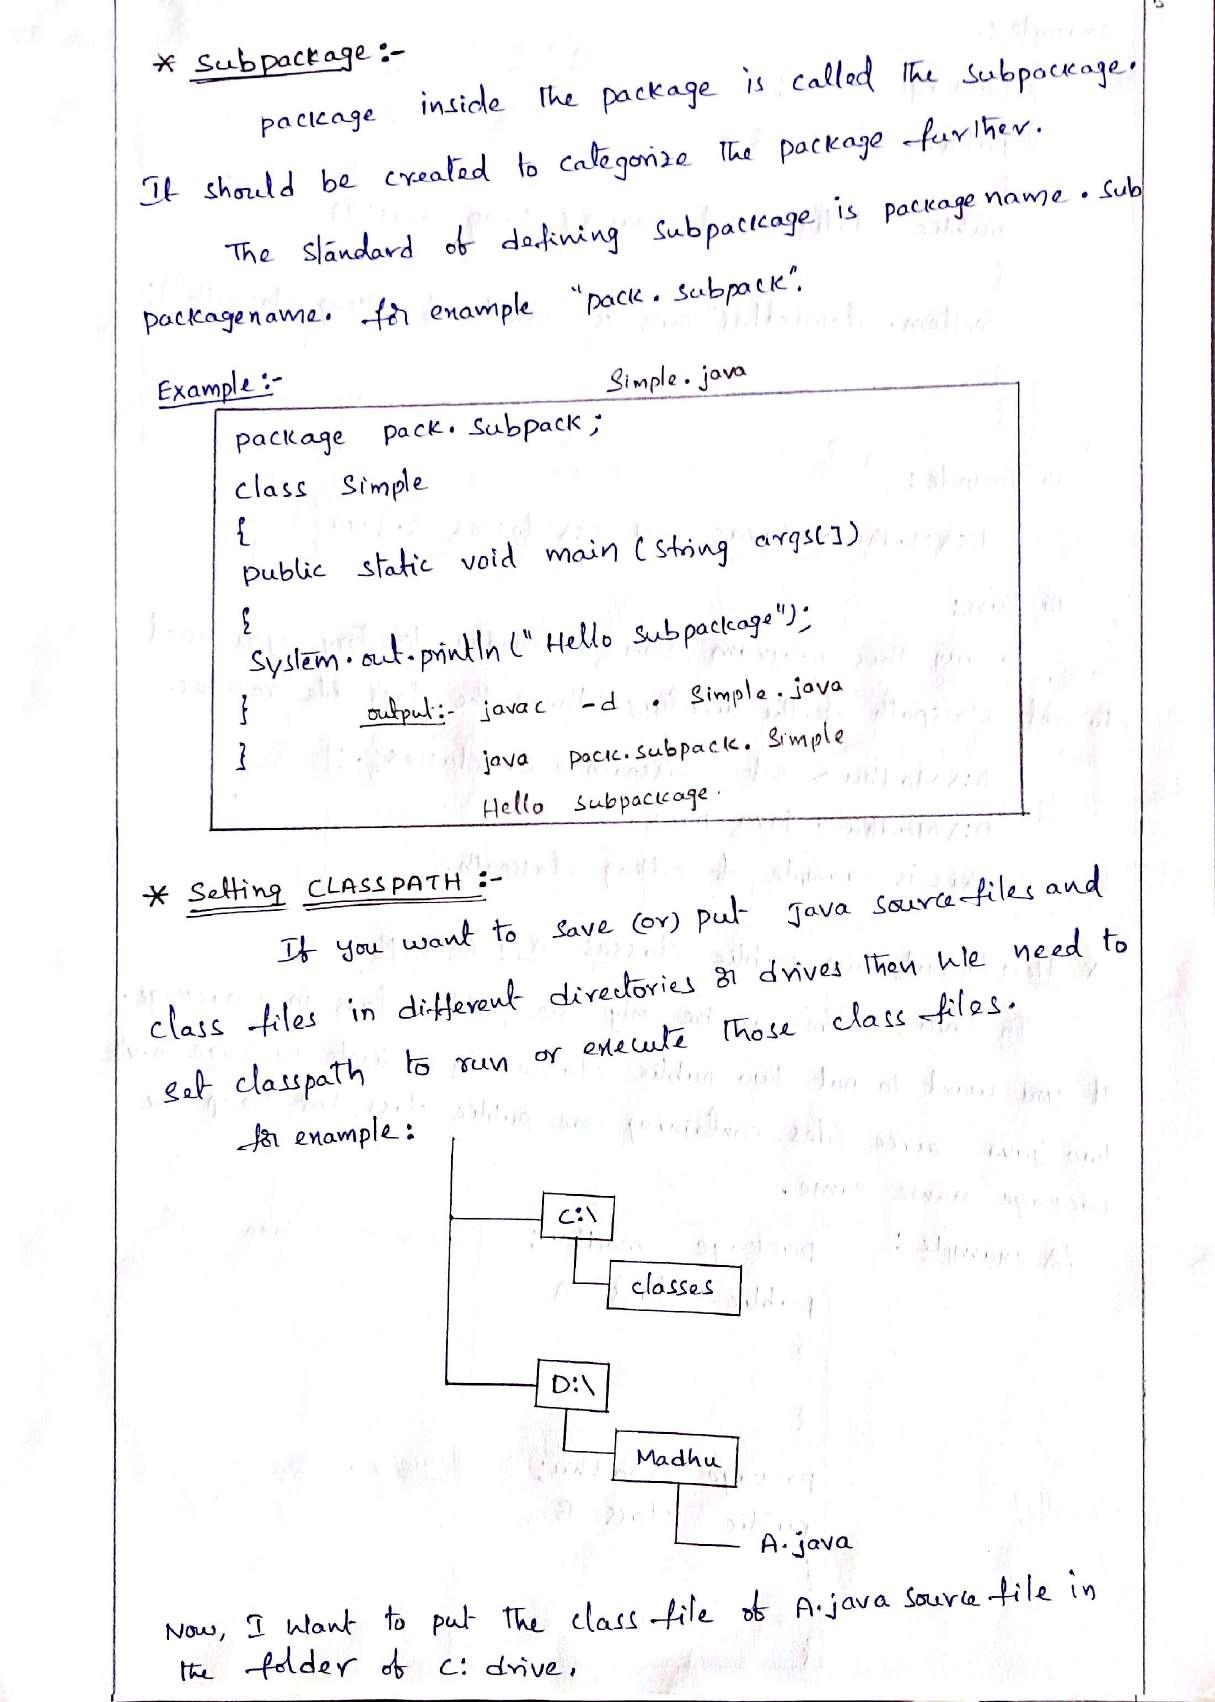 * Subpackage :-
package inside the package is called the subpackage.
It should be created to categorize the package further.
The standard of defining subpackage is package name . sub
packagename. for example "pack . subpack".
Example :-
Simple . java
package pack . subpack ;
class Simple
{
public static void main ( string args[])
{
System . out . println (" Hello subpackage");
} output :- javac -d . Simple . java
} java pack . subpack . Simple
Hello subpackage .
* Setting CLASSPATH :-
If you want to save (or) put Java source files and
class files in different directories or drives then we need to
set classpath to run or execute those class files.
for example :
C:\
classes
D:\
Madhu
A.java
Now, I want to put the class file of A.java source file in
the folder of C: drive.